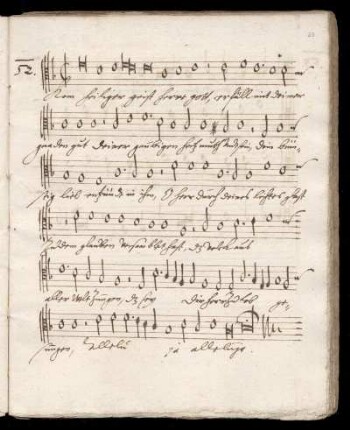 52.
Kom heiliger geist herre gott, erfüll mit deiner
gnaden gut deiner gläubigen hertz muth und sin, dein brün-
stig lieb entzünd in ihn, O herr durch deines liechtes glast
zu dem glauben versamblet hast, das volck aus
aller welt zungen, das sey dir herr zu lob ge-
sungen, allelu ja alleluja.